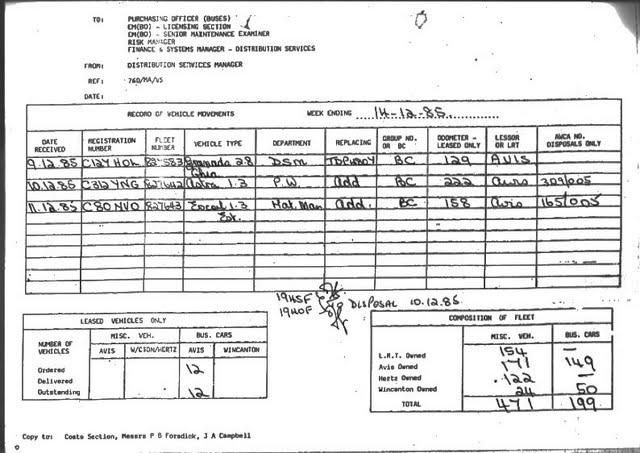 TO: PURCHASING OFFICER (BUSES)
EM(BO) - LICENSING SECTION
EM(BO) - SENIOR MAINTENANCE EXAMINER
RISK MANAGER
FINANCE & SYSTEMS MANAGER - DISTRIBUTION SERVICES
FROM: DISTRIBUTION SERVICES MANAGER
REF: 760/MA/VS
DATE:
RECORD OF VEHICLE MOVEMENTS WEEK ENDING 14-12-85
DATE RECEIVED REGISTRATION NUMBER FLEET NUMBER VEHICLE TYPE DEPARTMENT REPLACING GROUP NO. OR BC ODOMETER - LEASED ONLY LESSOR OR LRT AWCA NO. DISPOSALS ONLY
9.12.85 C12Y HOL 827583 Granada 2.8 D.S.M. BC 129 AVIS
10.12.85 C312YNG 827642 Astra 1.3 P.W. Add BC 222 Avis 309/005
11.12.85 C80NVO 827643 Escort 1.3 Mat. Man Add. BC 158 Avis 165/005
Est.
194SF
194OF DISPOSAL 10.12.85
LEASED VEHICLES ONLY
NUMBER OF VEHICLES MISC. VEH. BUS. CARS
AVIS W/CTON/HERTZ AVIS WINCANTON
Ordered 12
Delivered
Outstanding 12
COMPOSITION OF FLEET
MISC. VEH. BUS. CARS
L.R.T. Owned 154 —
Avis Owned 171 149
Hertz Owned 122 —
Wincanton Owned 24 50
TOTAL 471 199
Copy to: Costs Section, Messrs P B Forsdick, J A Campbell